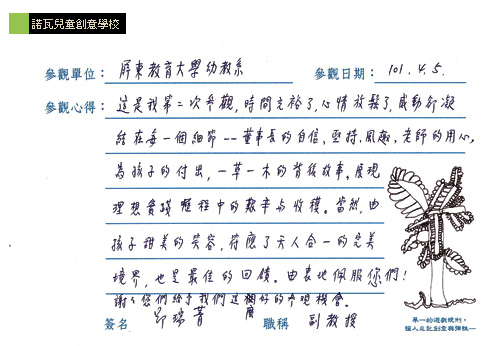 諾瓦兒童創意學校
參觀單位：屏東教育大學幼教系 參觀日期：101.4.5.
參觀心得：這是我第二次參觀，時間充裕了，心情放鬆了，感動卻凝
結在每一個細節--董事長的自信、堅持、風趣、老師的用心，
為孩子的付出，一草一木的背後故事，展現
理想實踐歷程中的艱辛與收穫。當然，由
孩子甜美的笑容，符應了天人合一的完美
境界，也是最佳的回饋。由衷地佩服您們！
謝謝您們給予我們這麼好的參觀機會。
簽名 瑞菁 職稱 副教授
單一的遊戲規則，